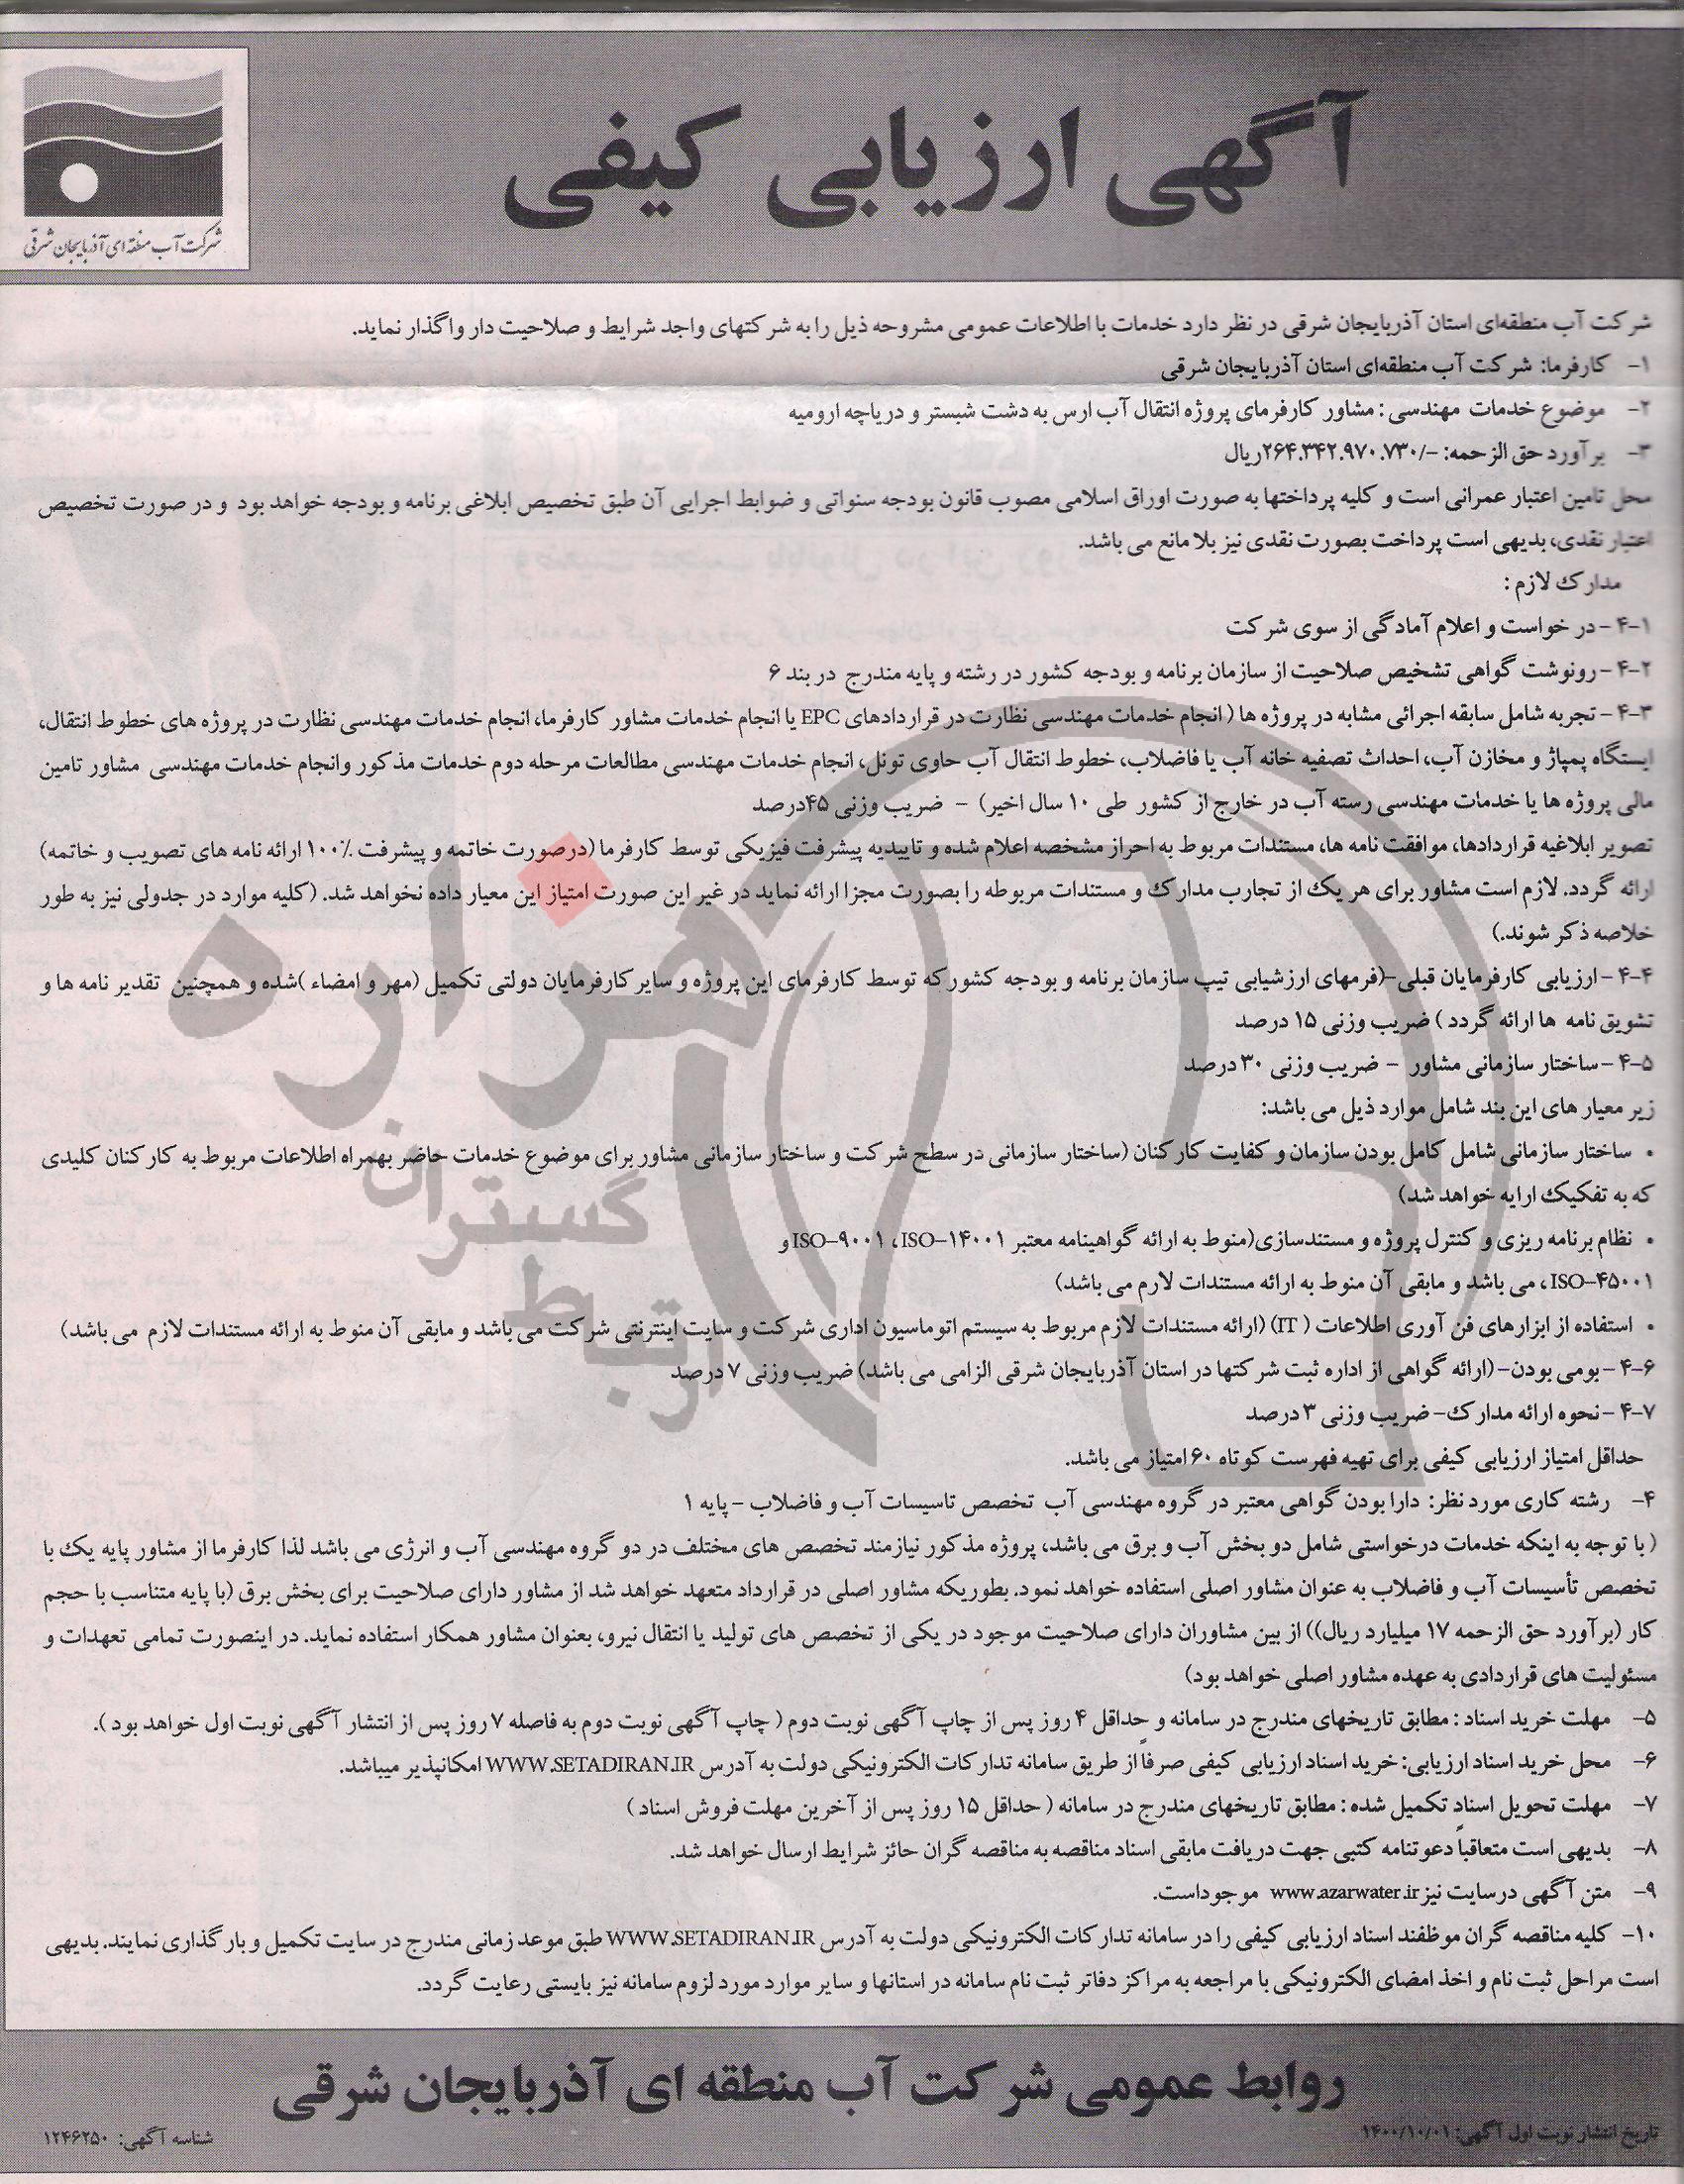 آگهی ارزیابی کیفی
شرکت آب منطقه ای آذربایجان شرقی
شرکت آب منطقه‌ای استان آذربایجان شرقی در نظر دارد خدمات با اطلاعات عمومی مشروحه ذیل را به شرکتهای واجد شرایط و صلاحیت دار واگذار نماید.
۱- کارفرما: شرکت آب منطقه‌ای استان آذربایجان شرقی
۲- موضوع خدمات مهندسی : مشاور کارفرمای پروژه انتقال آب ارس به دشت شبستر و دریاچه ارومیه
۳- برآورد حق الزحمه: -/۲۶۴.۳۴۲.۹۷۰.۷۳۰ریال
محل تامین اعتبار عمرانی است و کلیه پرداختها به صورت اوراق اسلامی مصوب قانون بودجه سنواتی و ضوابط اجرایی آن طبق تخصیص ابلاغی برنامه و بودجه خواهد بود و در صورت تخصیص
اعتبار نقدی، بدیهی است پرداخت بصورت نقدی نیز بلا مانع می باشد.
مدارک لازم :
۴-۱ -در خواست و اعلام آمادگی از سوی شرکت
۴-۲ -رونوشت گواهی تشخیص صلاحیت از سازمان برنامه و بودجه کشور در رشته و پایه مندرج در بند ۶
۴-۳ -تجربه شامل سابقه اجرائی مشابه در پروژه ها ( انجام خدمات مهندسی نظارت در قراردادهای EPC یا انجام خدمات مشاور کارفرما، انجام خدمات مهندسی نظارت در پروژه های خطوط انتقال،
ایستگاه پمپاژ و مخازن آب، احداث تصفیه خانه آب یا فاضلاب، خطوط انتقال آب حاوی تونل، انجام خدمات مهندسی مطالعات مرحله دوم خدمات مذکور وانجام خدمات مهندسی مشاور تامین
مالی پروژه ها یا خدمات مهندسی رسته آب در خارج از کشور طی ۱۰ سال اخیر) - ضریب وزنی ۴۵درصد
تصویر ابلاغیه قراردادها، موافقت نامه ها، مستندات مربوط به احراز مشخصه اعلام شده و تاییدیه پیشرفت فیزیکی توسط کارفرما (درصورت خاتمه و پیشرفت ۱۰۰٪ ارائه نامه های تصویب و خاتمه)
ارائه گردد. لازم است مشاور برای هر یک از تجارب مدارک و مستندات مربوطه را بصورت مجزا ارائه نماید در غیر این صورت امتیاز این معیار داده نخواهد شد. (کلیه موارد در جدولی نیز به طور
خلاصه ذکر شوند.)
۴-۴ -ارزیابی کارفرمایان قبلی-(فرمهای ارزشیابی تیپ سازمان برنامه و بودجه کشور که توسط کارفرمای این پروژه و سایر کارفرمایان دولتی تکمیل (مهر و امضاء )شده و همچنین تقدیر نامه ها و
تشویق نامه ها ارائه گردد ) ضریب وزنی ۱۵ درصد
۴-۵ -ساختار سازمانی مشاور - ضریب وزنی ۳۰ درصد
زیر معیار های این بند شامل موارد ذیل می باشد:
• ساختار سازمانی شامل کامل بودن سازمان و کفایت کارکنان (ساختار سازمانی در سطح شرکت و ساختار سازمانی مشاور برای موضوع خدمات حاضر بهمراه اطلاعات مربوط به کارکنان کلیدی
که به تفکیک ارایه خواهد شد)
• نظام برنامه ریزی و کنترل پروژه و مستندسازی(منوط به ارائه گواهینامه معتبر ISO-۹۰۰۱ ،ISO-۱۴۰۰۱ و
ISO-۴۵۰۰۱ ، می باشد و مابقی آن منوط به ارائه مستندات لارم می باشد)
• استفاده از ابزارهای فن آوری اطلاعات ( IT) (ارائه مستندات لازم مربوط به سیستم اتوماسیون اداری شرکت و سایت اینترنتی شرکت می باشد و مابقی آن منوط به ارائه مستندات لازم می باشد)
۴-۶ -بومی بودن-(ارائه گواهی از اداره ثبت شرکتها در استان آذربایجان شرقی الزامی می باشد) ضریب وزنی ۷ درصد
۴-۷ -نحوه ارائه مدارک- ضریب وزنی ۳ درصد
حداقل امتیاز ارزیابی کیفی برای تهیه فهرست کوتاه ۶۰ امتیاز می باشد.
۴- رشته کاری مورد نظر: دارا بودن گواهی معتبر در گروه مهندسی آب تخصص تاسیسات آب و فاضلاب - پایه ۱
( با توجه به اینکه خدمات درخواستی شامل دو بخش آب و برق می باشد، پروژه مذکور نیازمند تخصص های مختلف در دو گروه مهندسی آب و انرژی می باشد لذا کارفرما از مشاور پایه یک با
تخصص تأسیسات آب و فاضلاب به عنوان مشاور اصلی استفاده خواهد نمود. بطوریکه مشاور اصلی در قرارداد متعهد خواهد شد از مشاور دارای صلاحیت برای بخش برق (با پایه متناسب با حجم
کار (برآورد حق الزحمه ۱۷ میلیارد ریال)) از بین مشاوران دارای صلاحیت موجود در یکی از تخصص های تولید یا انتقال نیرو، بعنوان مشاور همکار استفاده نماید. در اینصورت تمامی تعهدات و
مسئولیت های قراردادی به عهده مشاور اصلی خواهد بود)
۵- مهلت خرید اسناد : مطابق تاریخهای مندرج در سامانه و حداقل ۴ روز پس از چاپ آگهی نوبت دوم ( چاپ آگهی نوبت دوم به فاصله ۷ روز پس از انتشار آگهی نوبت اول خواهد بود ).
۶- محل خرید اسناد ارزیابی: خرید اسناد ارزیابی کیفی صرفاً از طریق سامانه تدارکات الکترونیکی دولت به آدرس WWW.SETADIRAN.IR امکانپذیر میباشد.
۷- مهلت تحویل اسناد تکمیل شده : مطابق تاریخهای مندرج در سامانه ( حداقل ۱۵ روز پس از آخرین مهلت فروش اسناد )
۸- بدیهی است متعاقباً دعوتنامه کتبی جهت دریافت مابقی اسناد مناقصه به مناقصه گران حائز شرایط ارسال خواهد شد.
۹- متن آگهی درسایت نیز www.azarwater.ir موجوداست.
۱۰- کلیه مناقصه گران موظفند اسناد ارزیابی کیفی را در سامانه تدارکات الکترونیکی دولت به آدرس WWW.SETADIRAN.IR طبق موعد زمانی مندرج در سایت تکمیل و بارگذاری نمایند. بدیهی
است مراحل ثبت نام و اخذ امضای الکترونیکی با مراجعه به مراکز دفاتر ثبت نام سامانه در استانها و سایر موارد مورد لزوم سامانه نیز بایستی رعایت گردد.
روابط عمومی شرکت آب منطقه ای آذربایجان شرقی
تاریخ انتشار نوبت اول آگهی: ۱۴۰۰/۱۰/۰۱
شناسه آگهی: ۱۲۴۶۲۵۰
هزاره
گستران
ارتباط